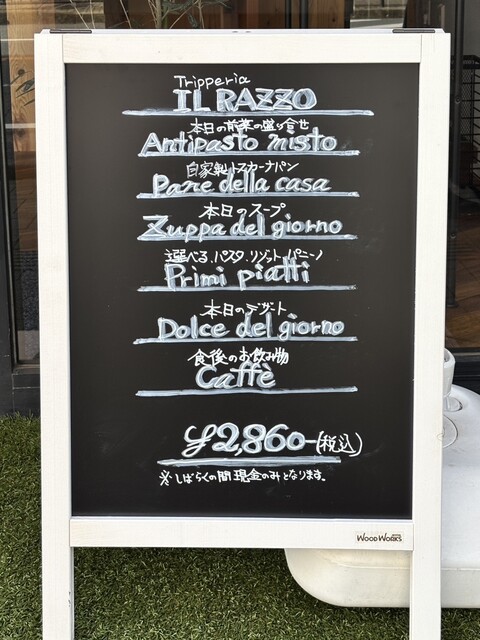 Tripperia
IL RAZZO
本日の前菜の盛り合せ
Antipasto misto
自家製トスカーナパン
Pane della casa
本日のスープ
Zuppa del giorno
選べる.パスタ.リゾット.パニーノ
Primi piatti
本日のデザート
Dolce del giorno
食後のお飲み物
Caffè
¥2,860-(税込)
※しばらくの間現金のみとなります。
WOODWORKS